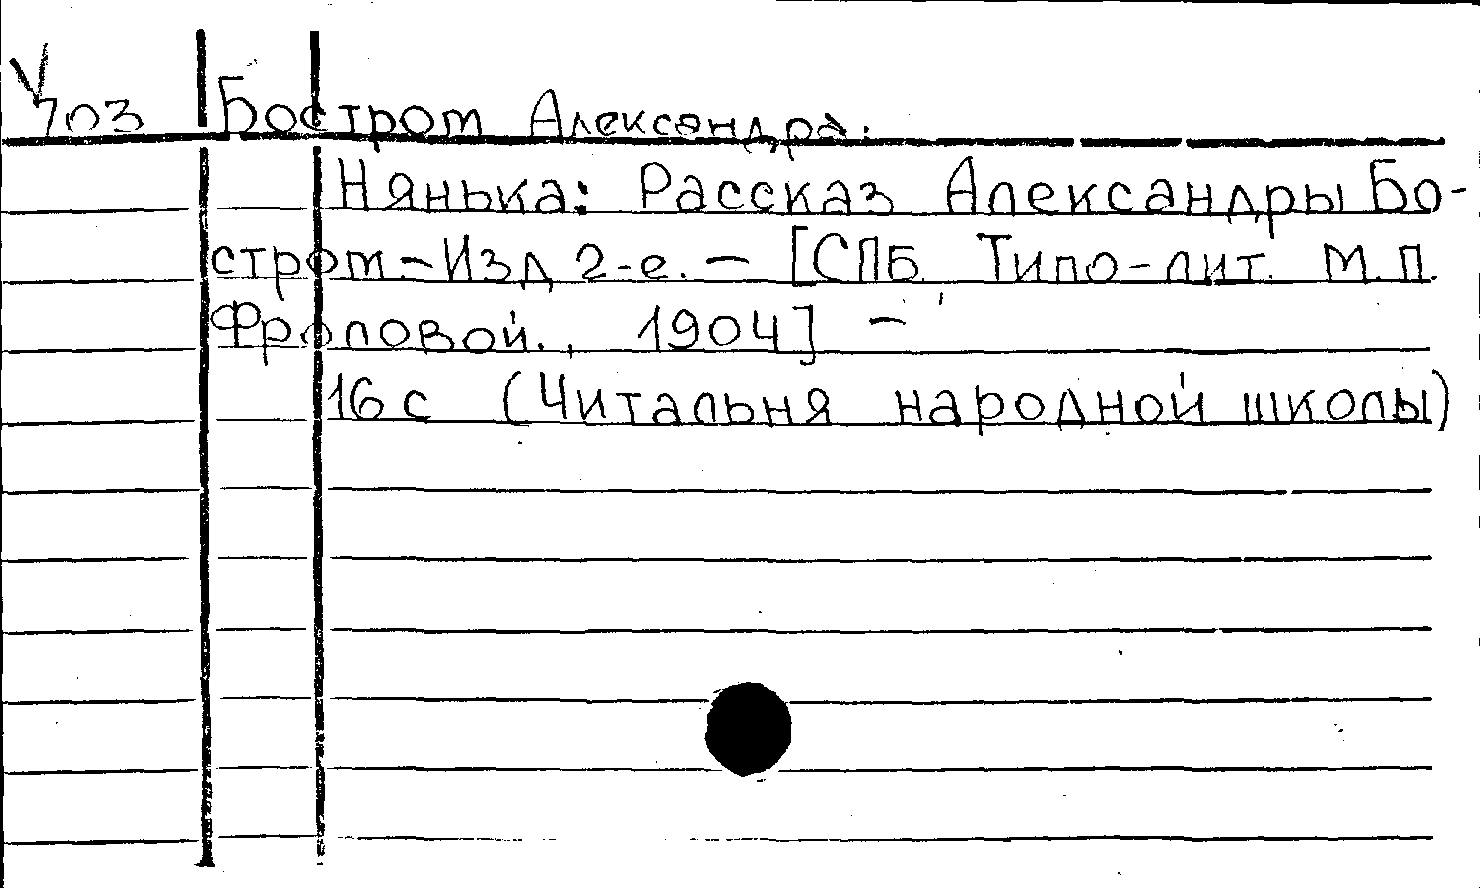 V
703 Бостром Александра.
Нянька: Рассказ Александры Бо-
стром.-Изд 2-е. - [СПБ Типо-лит. М.П.
Фроловой., 1904] -
16 с (Читальня народной школы)